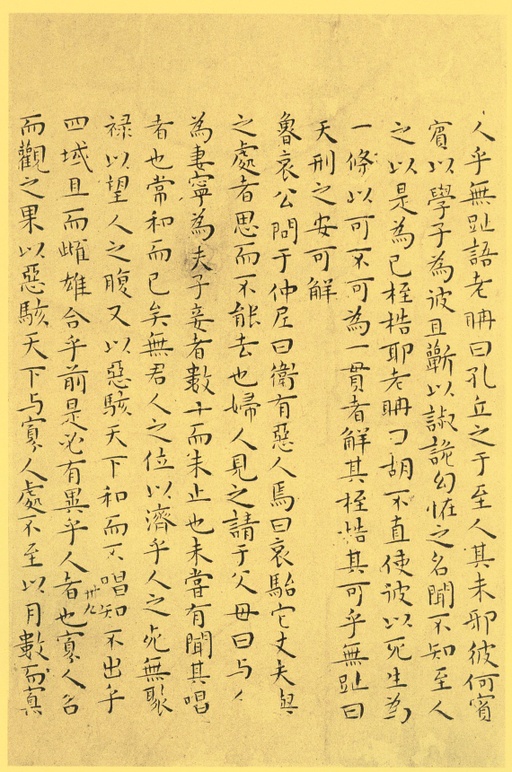 人乎無趾語老聃曰孔丘之于至人其未邪彼何賓
賓以學子為彼且蘄以諔詭幻怪之名聞不知至人
之以是為已桎梏耶老聃曰胡不直使彼以死生為
一條以可不可為一貫者解其桎梏其可乎無趾曰
天刑之安可解
魯哀公問于仲尼曰衛有惡人焉曰哀駘它丈夫與
之處者思而不能去也婦人見之請于父母曰与人
為妻寧為夫子妾者數十而未止也未嘗有聞其唱
者也常和而已矣無君人之位以濟乎人之死無聚
禄以望人之腹又以惡駭天下和而不唱知不出乎
四域且而雌雄合乎前是必有異乎人者也寡人召
而觀之果以惡駭天下与寡人處不至以月數而寡